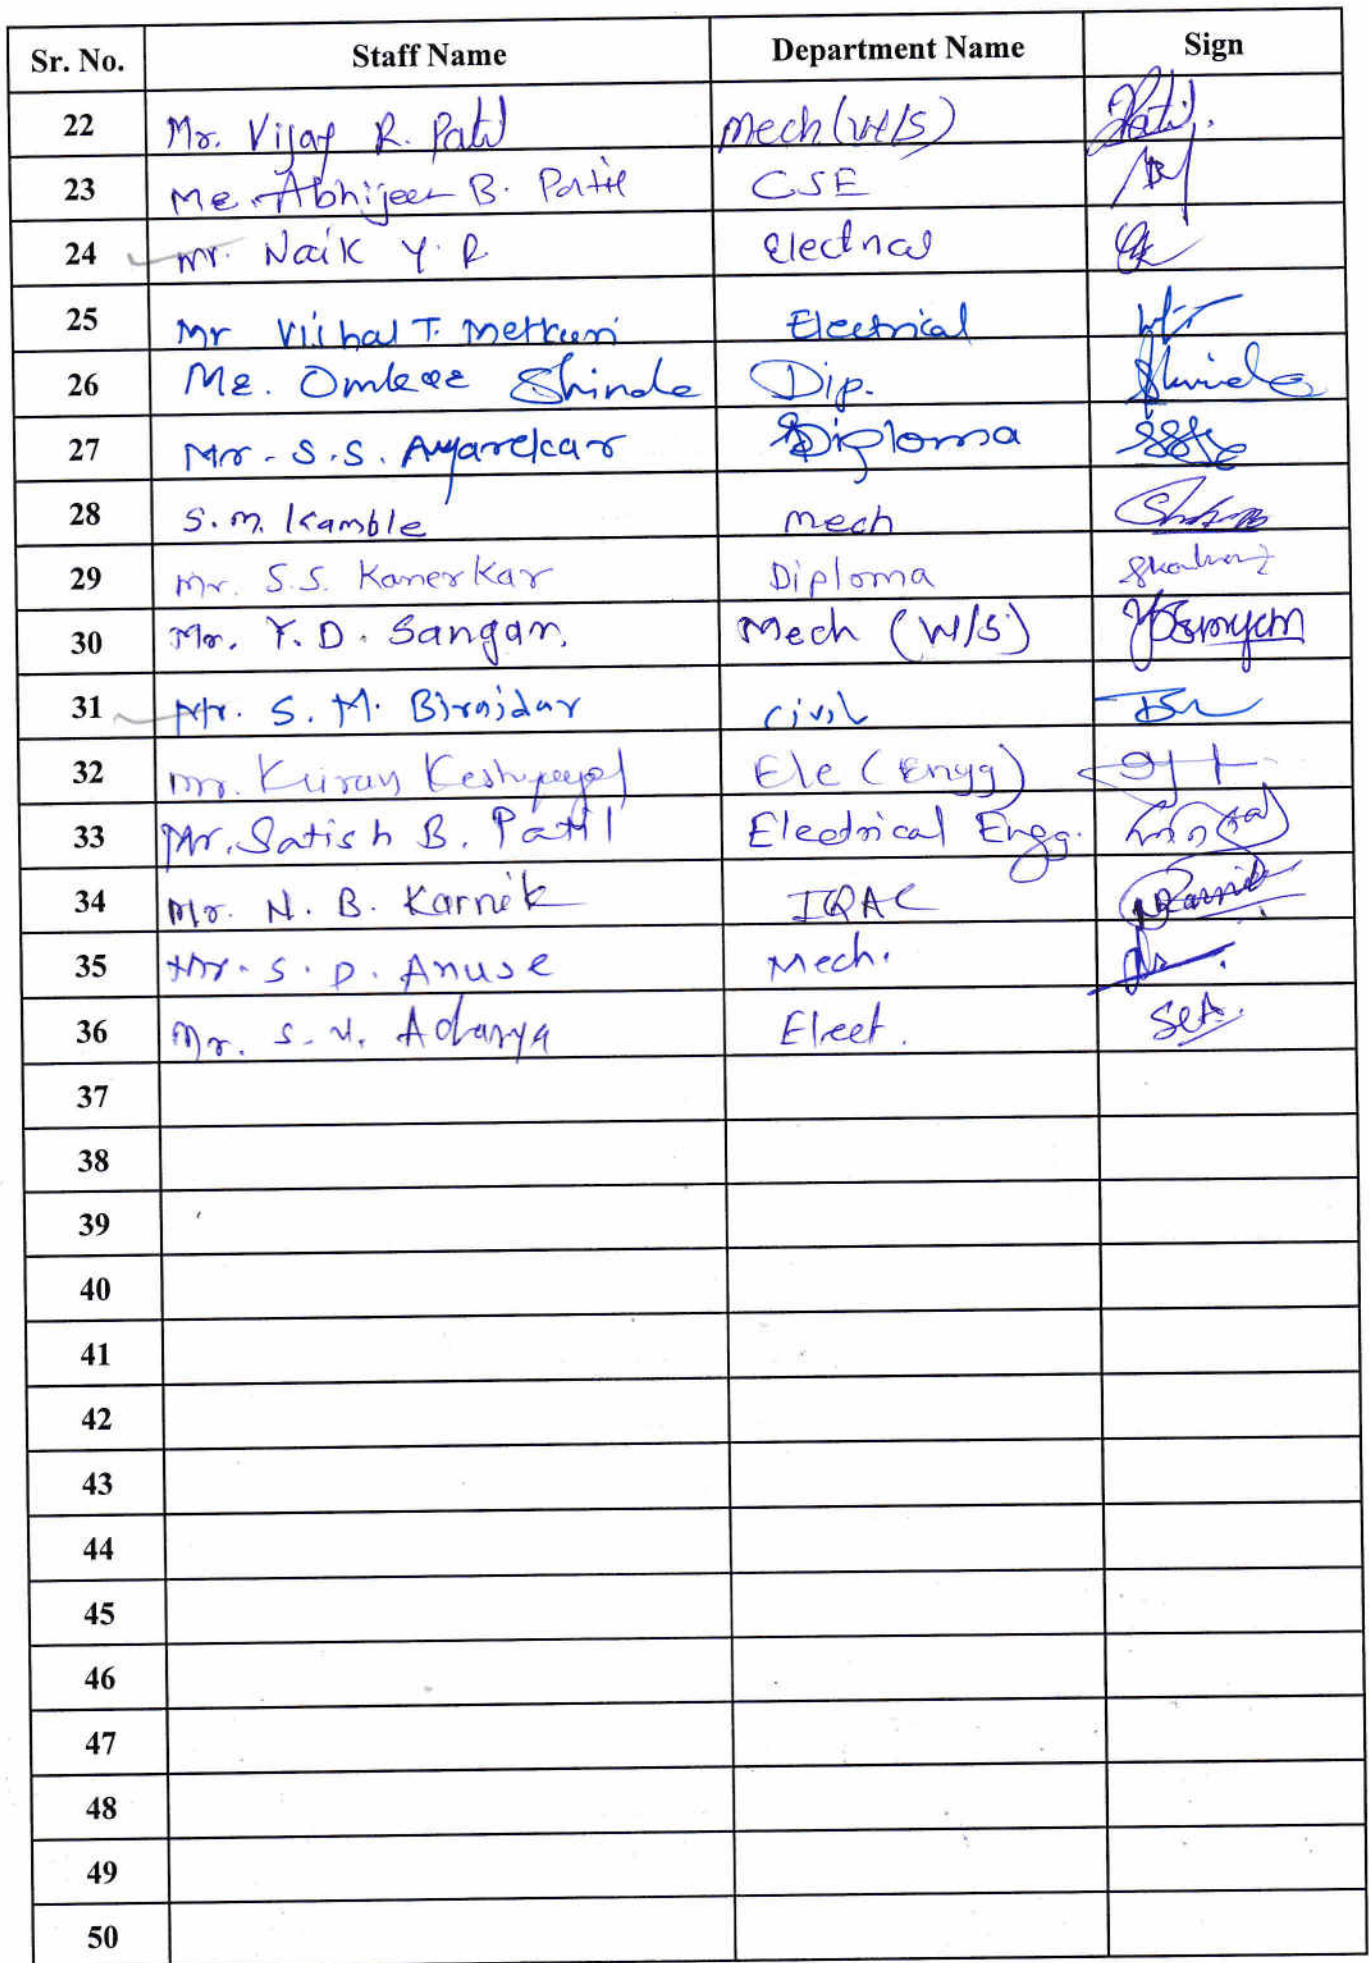 Sr. No. Staff Name Department Name Sign
22 Mr. Vijay R. Patil Mech (W/S) Patil.
23 Mr. Abhijeet B. Patil CSE
24 Mr. Naik Y. R. Electrical
25 Mr Vithal T. Metkari Electrical
26 Mr. Omkar Shinde Dip. Shinde
27 Mr. S.S. Ayarekar Diploma
28 S.M. Kamble Mech
29 Mr. S.S. Kanerkar Diploma
30 Mr. Y.D. Sangar. Mech (W/S)
31 Mr. S. M. Birajdar Civil
32 Mr. Kiran Ele (Engg)
33 Mr. Satish B. Patil Electrical Engg.
34 Mr. N. B. Karnik IQAC
35 Mr. S. D. Anuse Mech.
36 Mr. S. V. Acharya Elect.
37
38
39
40
41
42
43
44
45
46
47
48
49
50